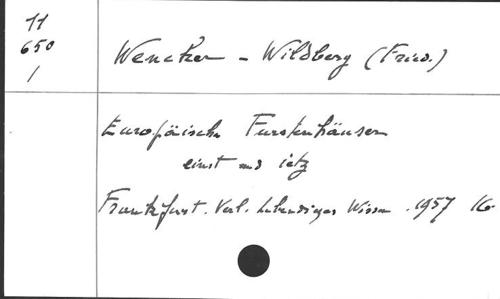 11
650
1
Wencker - Wildberg (Fried.)
Europäische Furstenhäuser
einst und ietz
Frankfurt. Verl. Lebendiges Wissen. 1957 16